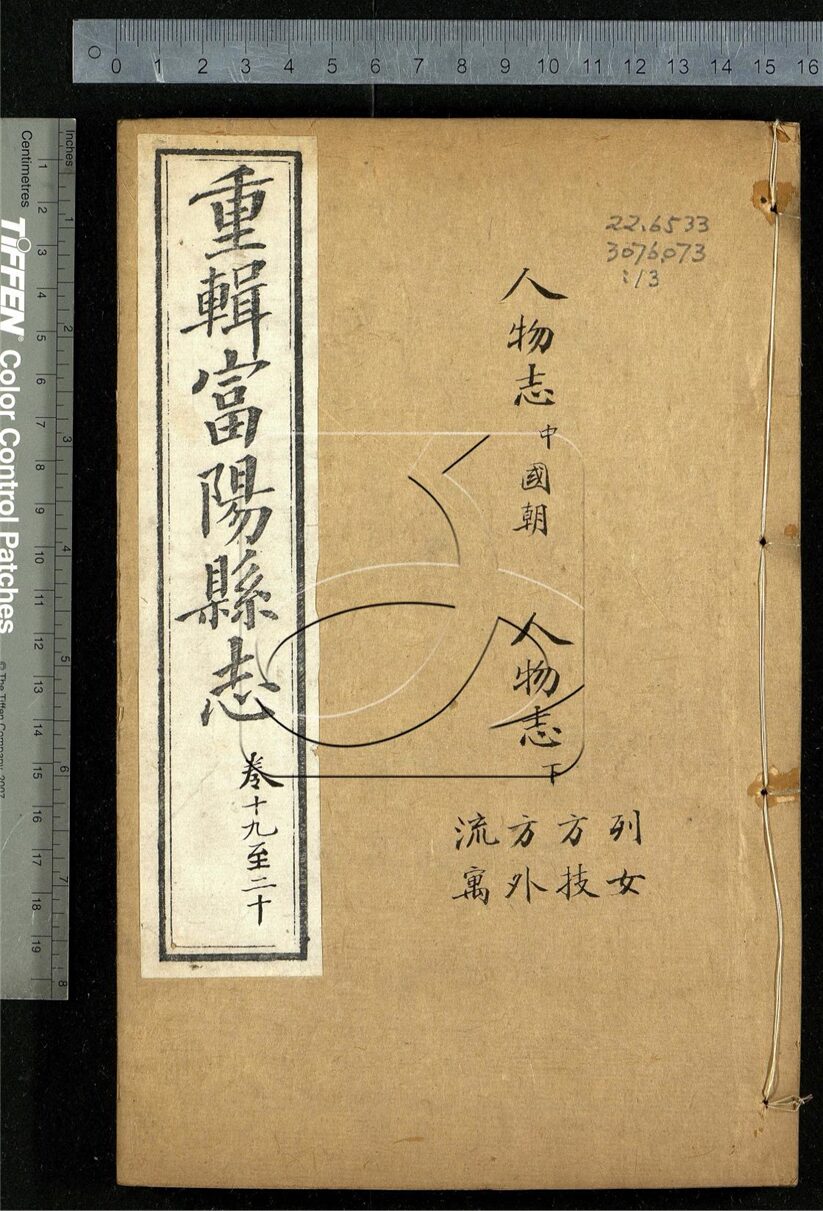 0 1 2 3 4 5 6 7 8 9 10 11 12 13 14 15 16
Inches
1 2 3 4 5 6 7 8
Centimetres
1 2 3 4 5 6 7 8 9 10 11 12 13 14 15 16 17 18 19
TIFFEN® Color Control Patches
© The Tiffen Company, 2007
22.6533
3076.073
:13
人物志 中 國朝
人物志 下
列女
方技
方外
流寓
重輯富陽縣志 卷十九至二十